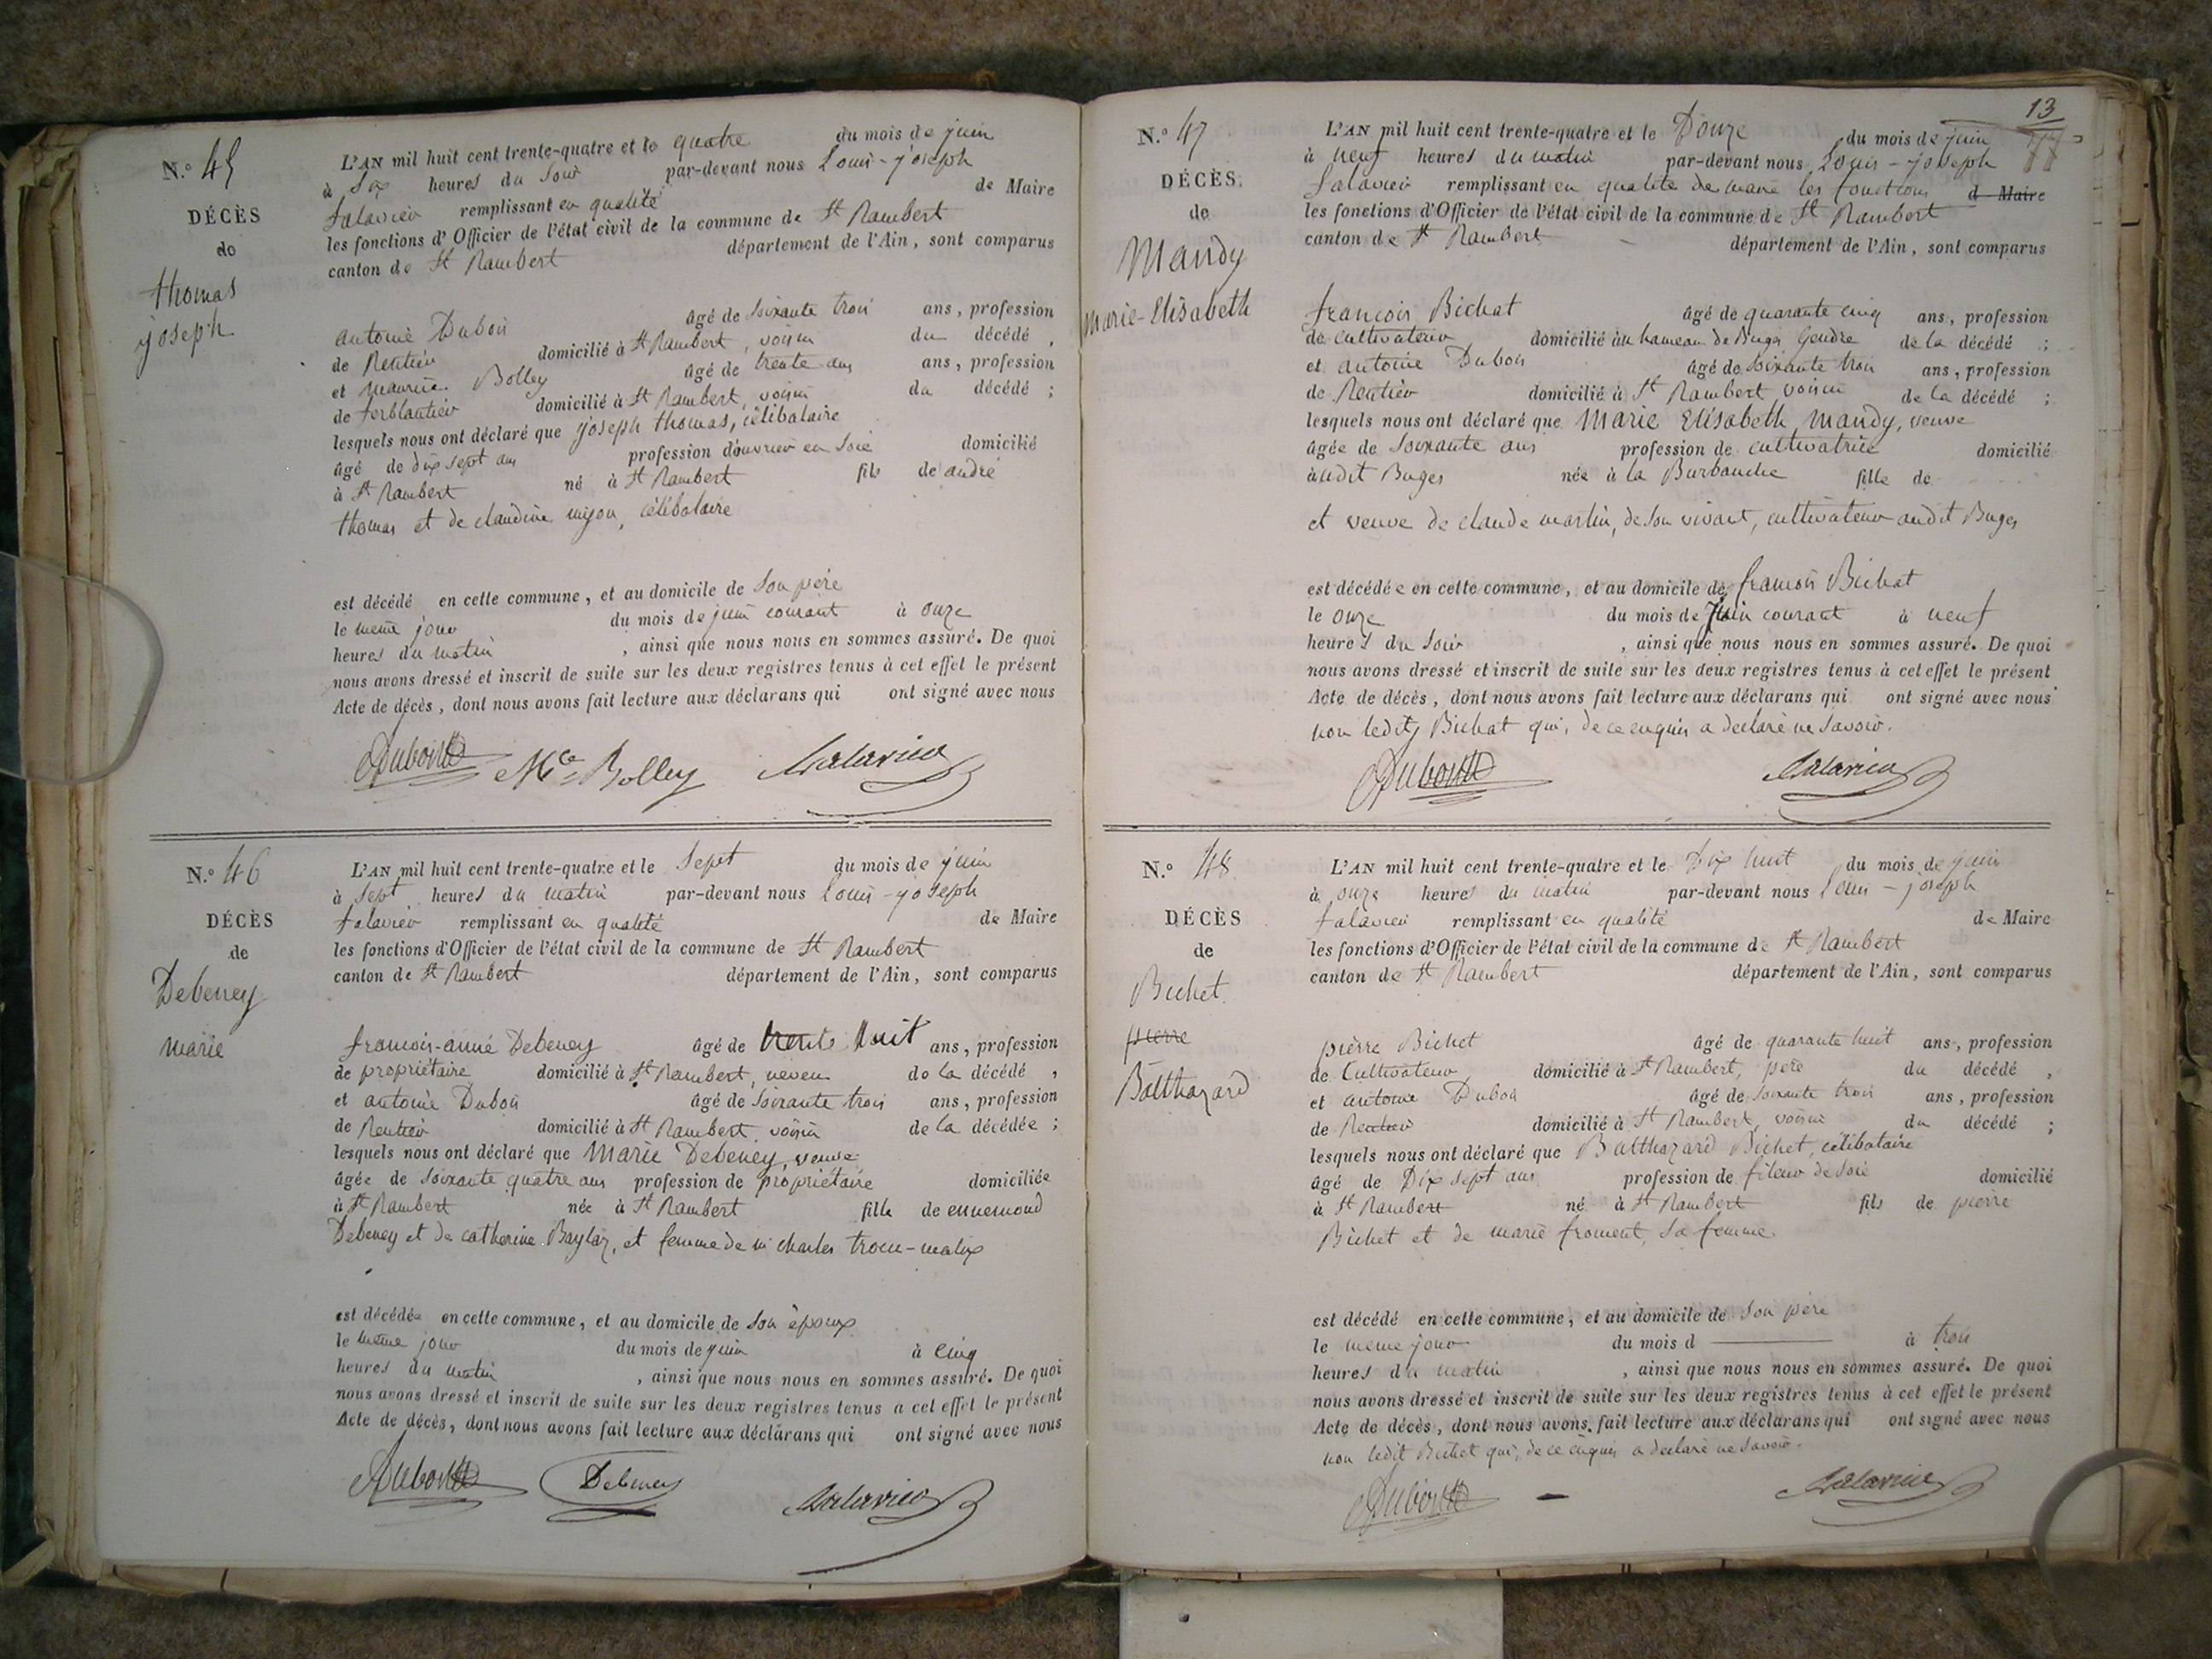 N.º 45
DÉCÈS
de
thomas
joseph
L'AN mil huit cent trente-quatre et le quatre du mois de juin
à Six heures du Soir par-devant nous Louis-joseph
falavier remplissant en qualité de Maire
les fonctions d'Officier de l'état civil de la commune de St Rambert
canton de St Rambert département de l'Ain, sont comparus
antoine Dubois âgé de Soixante trois ans, profession
de Rentier domicilié à St Rambert, voisin du décédé,
et maurice Bolley âgé de trente ans ans, profession
de ferblantier domicilié à St Rambert, voisin du décédé;
lesquels nous ont déclaré que joseph thomas, célibataire
âgé de dix sept ans profession d'ouvrier en Soie domicilié
à St Rambert né à St Rambert fils de andré
thomas et de claudine, célibataire
est décédé en cette commune, et au domicile de Son père
le même jour du mois de juin courant à onze
heures du matin, ainsi que nous nous en sommes assuré. De quoi
nous avons dressé et inscrit de suite sur les deux registres tenus à cet effet le présent
Acte de décès, dont nous avons fait lecture aux déclarans qui ont signé avec nous
Dubois Mce Bolley falavier
N.º 46
DÉCÈS
de
Debeney
marie
L'AN mil huit cent trente-quatre et le Sept du mois de juin
à Sept heures du matin par-devant nous Louis-joseph
falavier remplissant en qualité de Maire
les fonctions d'Officier de l'état civil de la commune de St Rambert
canton de St Rambert département de l'Ain, sont comparus
francois-aimé Debeney âgé de trente huit ans, profession
de propriétaire domicilié à St Rambert, neveu de la décédé,
et antoine Dubois âgé de Soixante trois ans, profession
de Rentier domicilié à St Rambert, voisin de la décédée;
lesquels nous ont déclaré que Marie Debeney, veuve
âgée de Soixante quatre ans profession de propriétaire domiciliée
à St Rambert née à St Rambert fille de ennemond
Debeney et de catherine Baylaz, et femme de charles
est décédée en cette commune, et au domicile de Son époux
le même jour du mois de juin à Cinq
heures du matin, ainsi que nous nous en sommes assuré. De quoi
nous avons dressé et inscrit de suite sur les deux registres tenus a cet effet le présent
Acte de décès, dont nous avons fait lecture aux déclarans qui ont signé avec nous
Dubois Debeney falavier
13
77
N.º 47
DÉCÈS
de
Mandy
Marie-Elisabeth
L'AN mil huit cent trente-quatre et le Douze du mois de juin
à neuf heures du matin par-devant nous Louis-joseph
falavier remplissant en qualité de maire les fonctions d Maire
les fonctions d'Officier de l'état civil de la commune de St Rambert
canton de St Rambert département de l'Ain, sont comparus
francois Bichat âgé de quarante cinq ans, profession
de cultivateur domicilié au hameau de Buges Gendre de la décédé;
et antoine Dubois âgé de Soixante trois ans, profession
de Rentier domicilié à St Rambert voisin de la décédé;
lesquels nous ont déclaré que Marie Elisabeth Mandy, veuve
âgée de Soixante ans profession de cultivatrice domicilié
audit Buges née à la Burbanche fille de
et veuve de claude martin, de Son vivant, cultivateur audit Buges
est décédée en cette commune, et au domicile de francois Bichat
le onze du mois de Juin courant à neuf
heures du Soir, ainsi que nous nous en sommes assuré. De quoi
nous avons dressé et inscrit de suite sur les deux registres tenus à cet effet le présent
Acte de décès, dont nous avons fait lecture aux déclarans qui ont signé avec nous
non ledit Bichat qui, de ce enquis a déclaré ne Savoir.
Dubois falavier
N.º 48
DÉCÈS
de
Bichet
pierre
Balthazard
L'AN mil huit cent trente-quatre et le Dix huit du mois de juin
à onze heures du matin par-devant nous Louis-joseph
falavier remplissant en qualité de Maire
les fonctions d'Officier de l'état civil de la commune de St Rambert
canton de St Rambert département de l'Ain, sont comparus
pierre Bichet âgé de quarante huit ans, profession
de Cultivateur domicilié à St Rambert, père du décédé,
et antoine Dubois âgé de Soixante trois ans, profession
de Rentier domicilié à St Rambert, voisin du décédé;
lesquels nous ont déclaré que Balthazard Bichet, célibataire
âgé de Dix sept ans profession de fileur de Soie domicilié
à St Rambert né à St Rambert fils de pierre
Bichet et de marie froment, Sa femme
est décédé en cette commune, et au domicile de Son père
le même jour du mois d à trois
heures du matin, ainsi que nous nous en sommes assuré. De quoi
nous avons dressé et inscrit de suite sur les deux registres tenus à cet effet le présent
Acte de décès, dont nous avons fait lecture aux déclarans qui ont signé avec nous
non ledit Bichet qui, de ce enquis a déclaré ne Savoir.
Dubois falavier